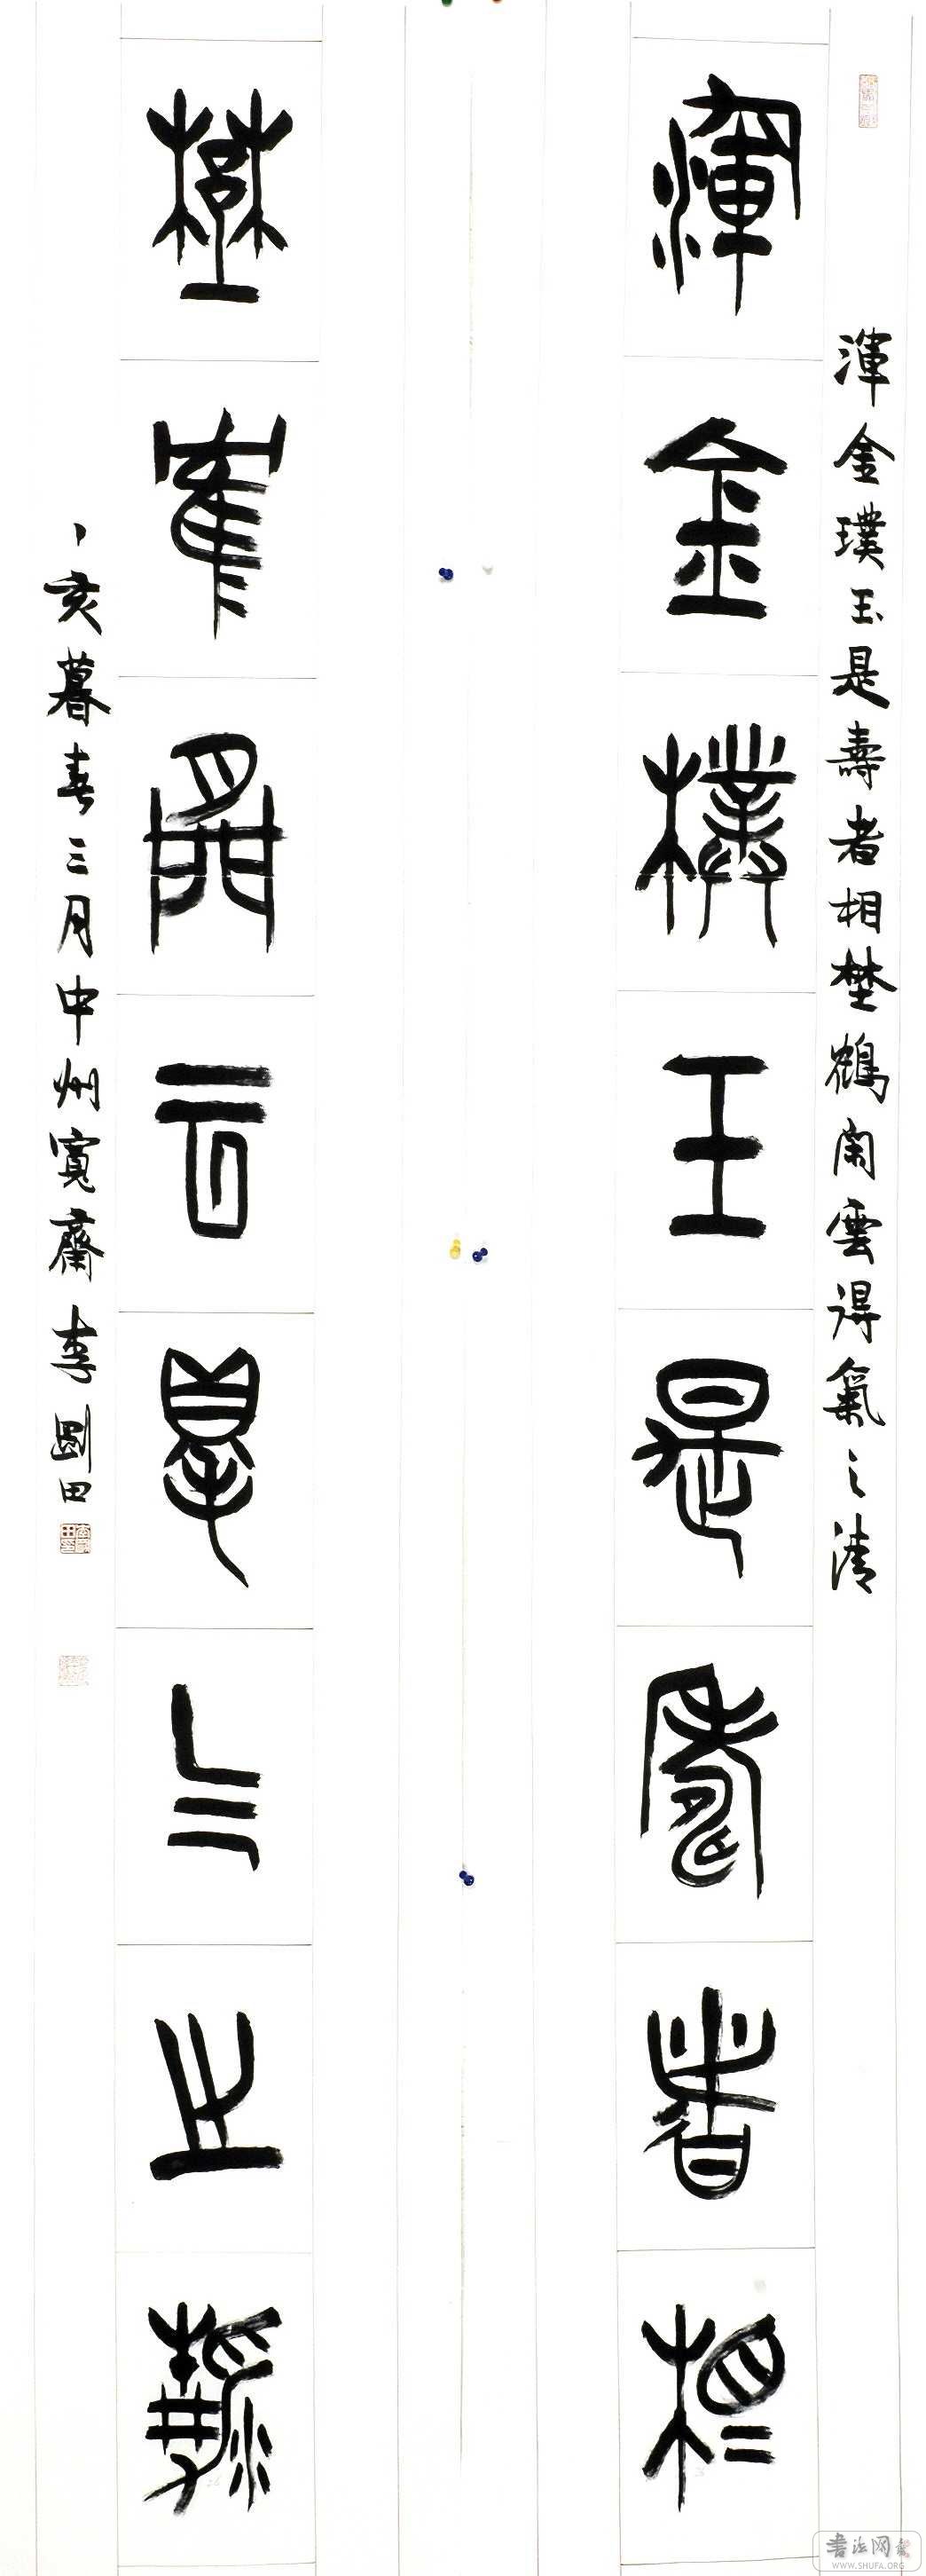 渾金璞玉是壽者相
埜鶴閑雲得氣之清
渾金璞玉是壽者相埜鶴閑雲得氣之清
丁亥暮春三月中州寬齋李剛田
書法网
WWW.SHUFA.ORG